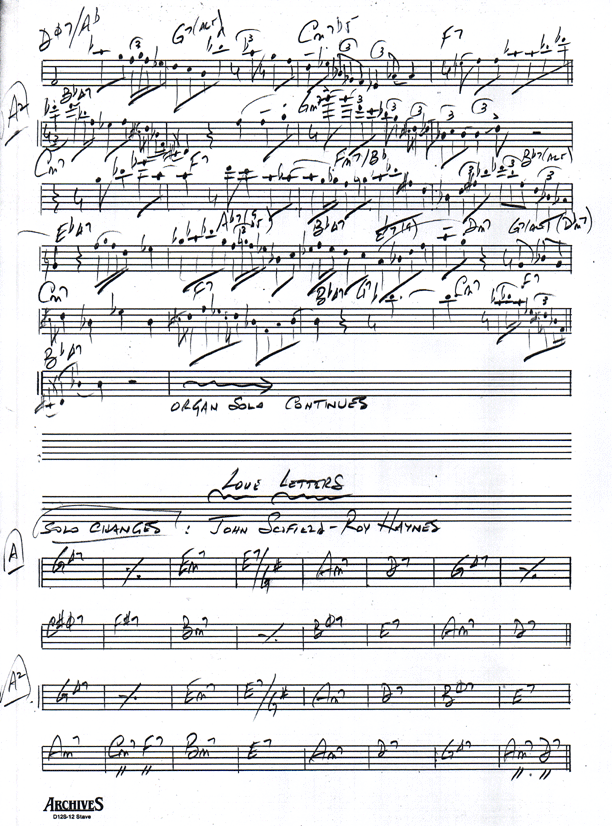 Dø7/Ab G7(alt) Cm7b5 F7
A2
BbΔ7 Gm7
Cm7 F7 Fm7/Bb Bb7(alt)
EbΔ7 Ab7 BbΔ7 Eb7(9) Dm7 G7(alt) (Dm7)
Cm7 F7 BbΔ7 G7 Cm7 F7
BbΔ7
ORGAN SOLO CONTINUES
LOVE LETTERS
SOLO CHANGES : JOHN SCIFIELD - ROY HAYNES
A
GΔ7 ٪ Em7 E7/G# Am7 D7 GΔ7 ٪
C#ø7 F#7 Bm7 ٪ Bø7 E7 Am7 D7
A2
GΔ7 ٪ Em7 E7/G# Am7 D7 Bø7 E7
Am7 Cm7 F7 Bm7 E7 Am7 D7 GΔ7 Am7 D7
ARCHIVES
D12S-12 Stave